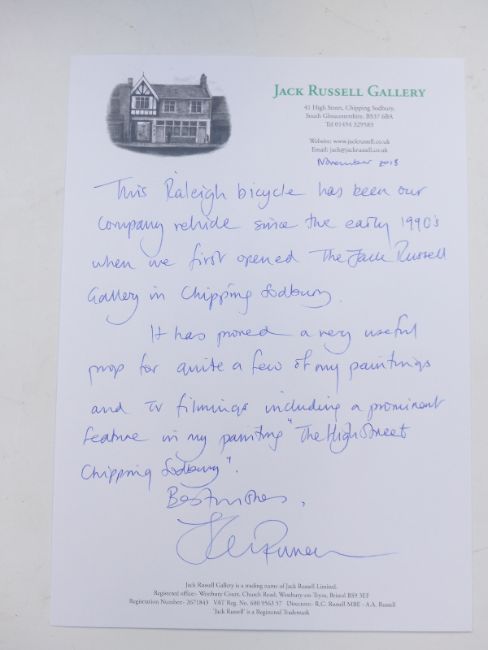 JACK RUSSELL GALLERY
41 High Street, Chipping Sodbury,
South Gloucestershire. BS37 6BA
Tel 01454 329583
Website: www.jackrussell.co.uk
Email: jack@jackrussell.co.uk
November 2018
This Raleigh bicycle has been our
company vehicle since the early 1990's
when we first opened The Jack Russell
Gallery in Chipping Sodbury.
It has proved a very useful
prop for quite a few of my paintings
and TV filmings including a prominent
feature in my painting "The High Street
Chipping Sodbury".
Best wishes,
Jack Russell Gallery is a trading name of Jack Russell Limited.
Registered office:- Westbury Court, Church Road, Westbury-on-Trym, Bristol BS9 3EF
Registration Number - 2671843 VAT Reg. No. 600 9563 57 Directors:- R.C. Russell MBE - A.A. Russell
'Jack Russell' is a Registered Trademark